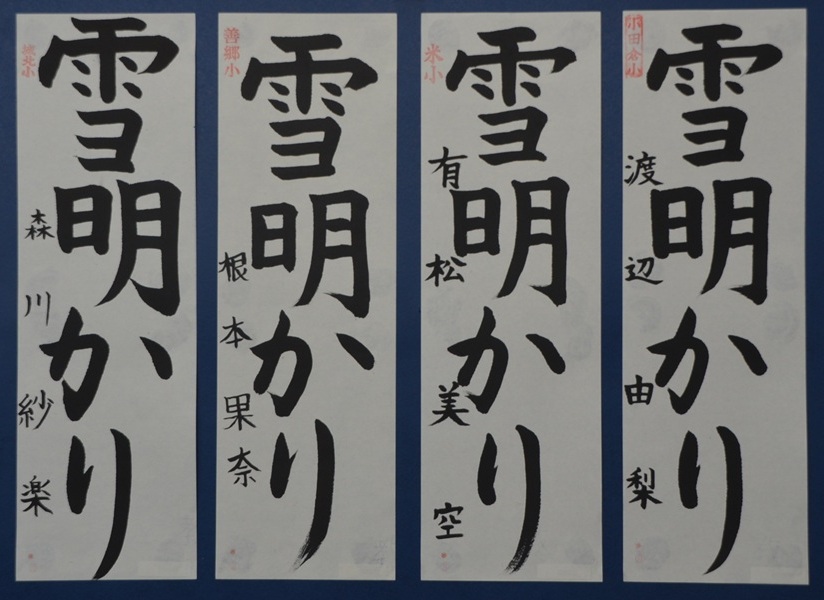 小田倉小
雪明かり
渡辺由梨
米小
雪明かり
有松美空
善郷小
雪明かり
根本果奈
城北小
雪明かり
森川紗楽